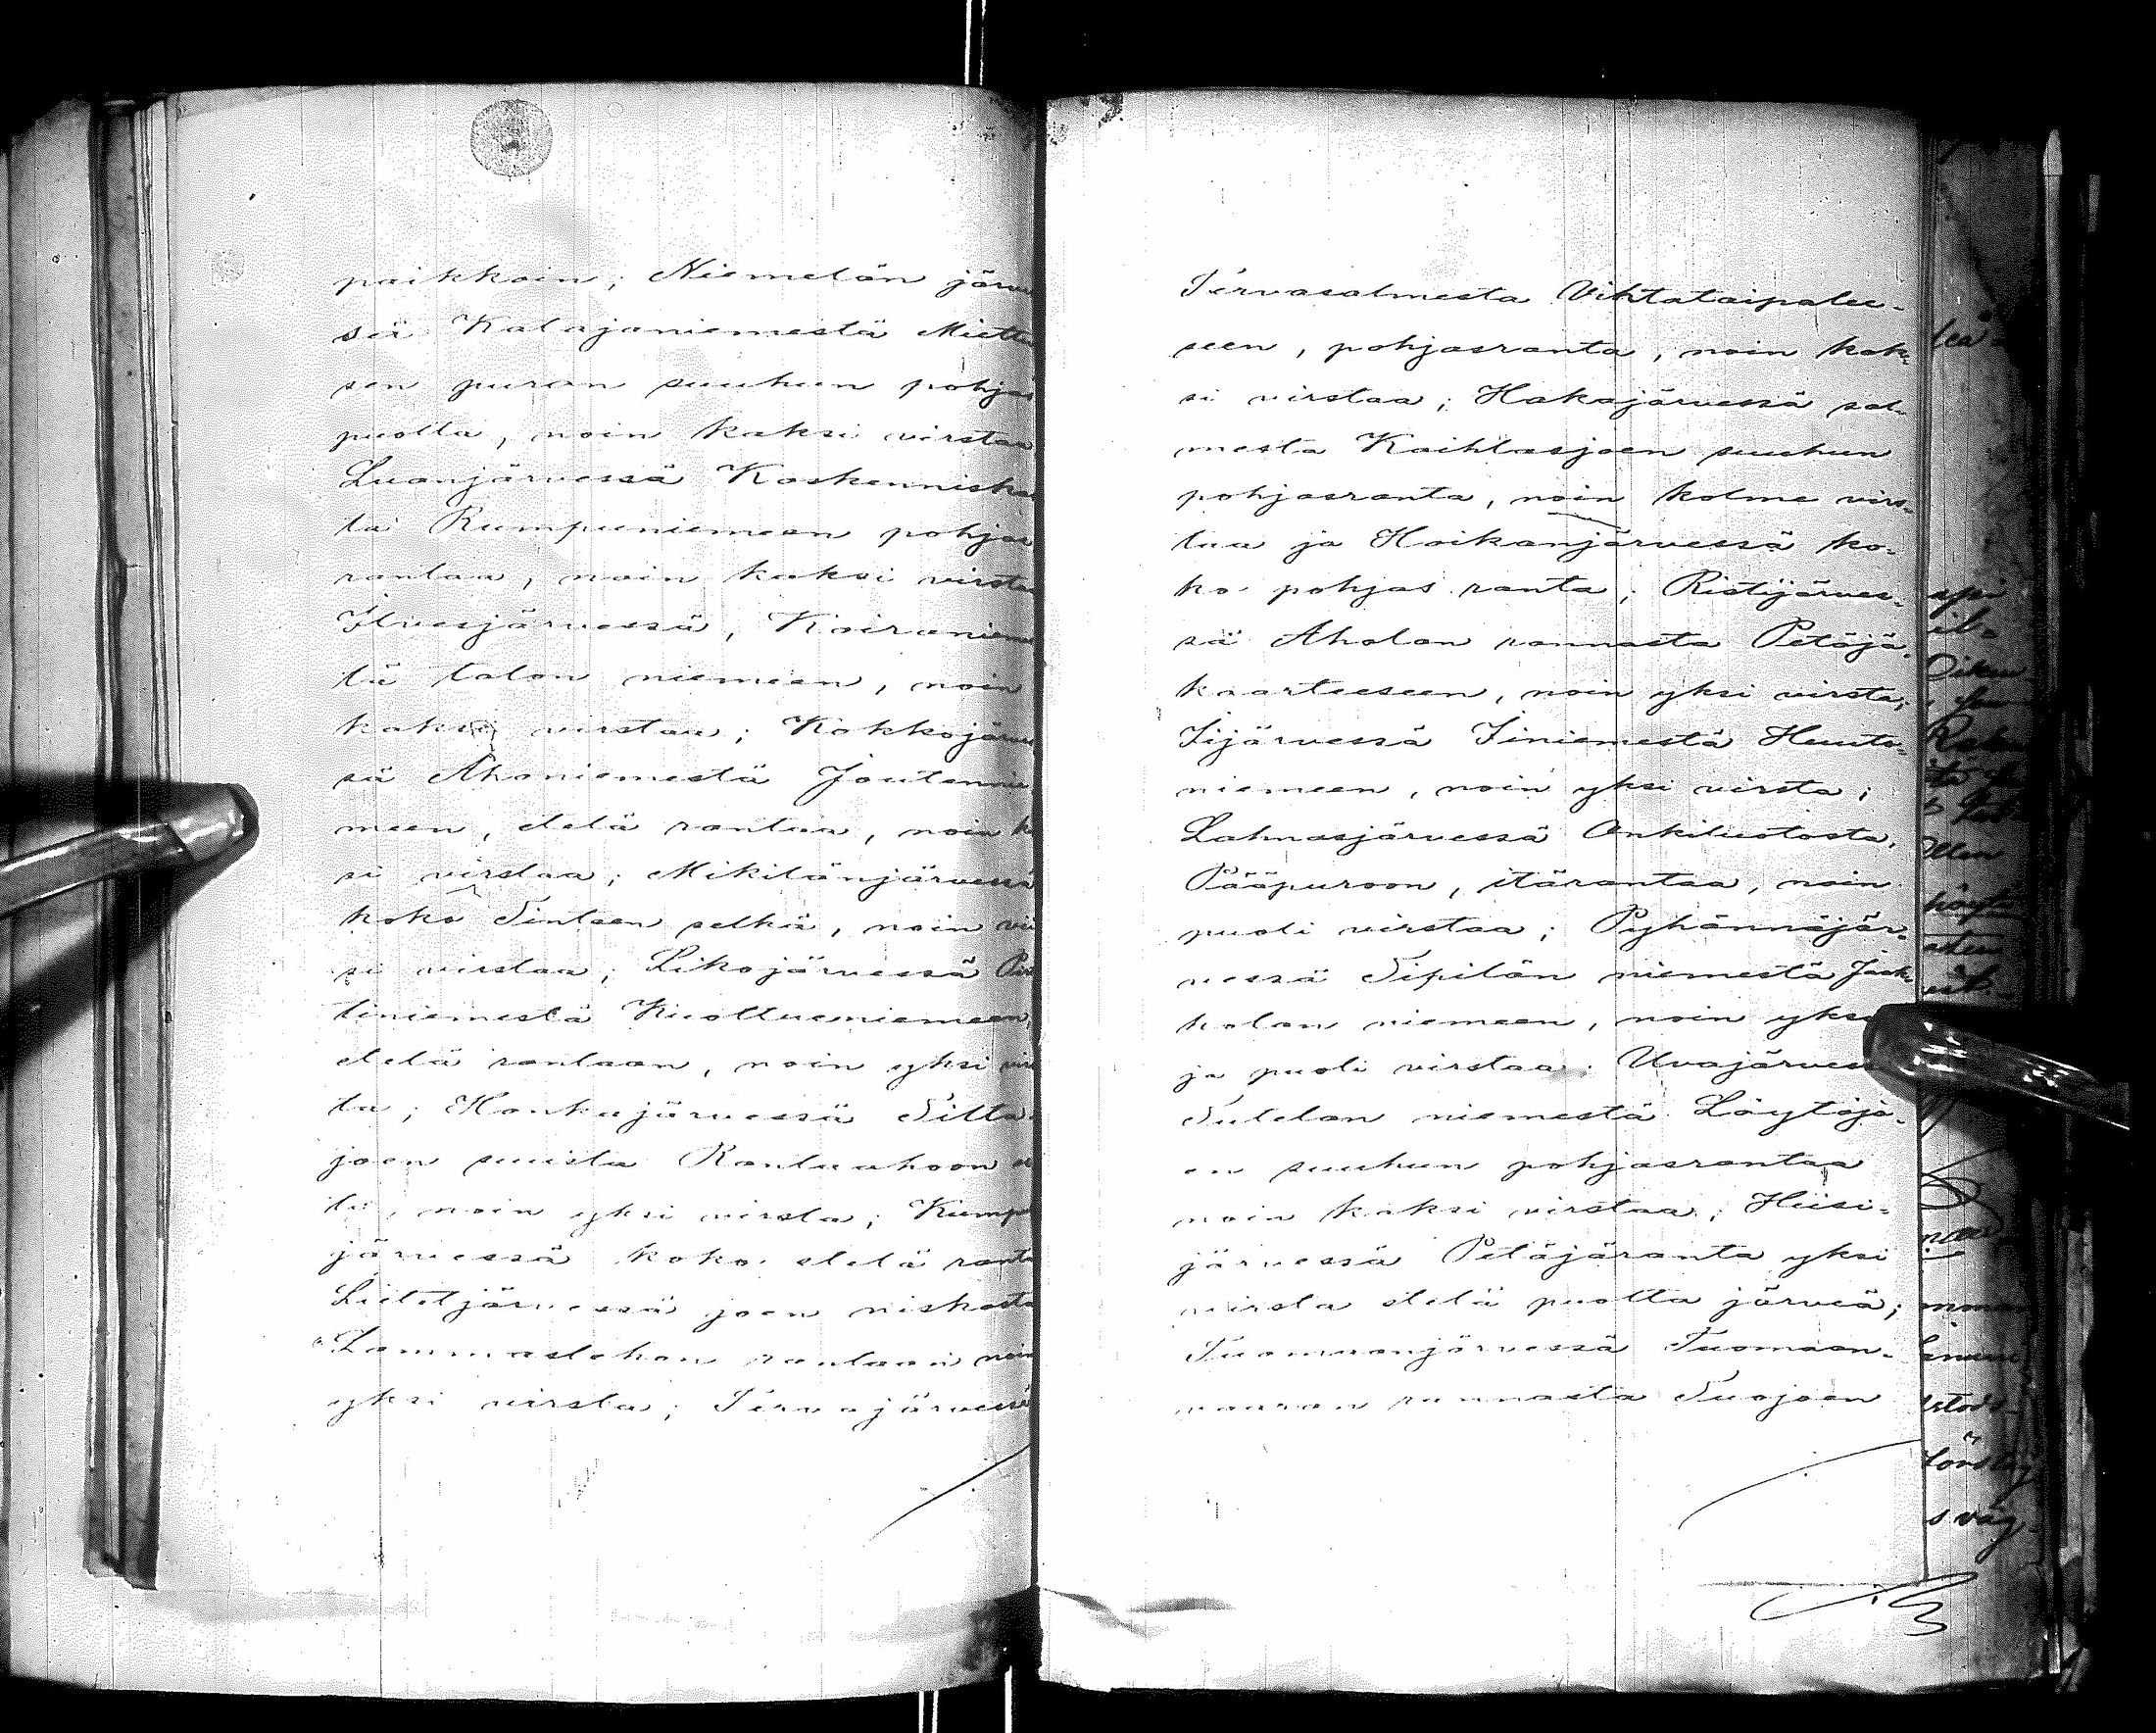 paikkoin; Niemelän järve
sä Kalajaniemestä Miettu
sen puron suuhun pohjas
puolta, noin kaksi virstaa
Luanjärvessä Koskenniska
ta Rumpuniemeen pohjas
rantaa, noin kaksi virsta
Ilvesjärvessä, Koiranieme
tä talon niemeen, noin
kaksi virstaa; Kokkojärve
sä Ahoniemestä Joutennie
meen, etelä rantaa, noin k
si virstaa; Mikitänjärvessä
koko Sinteen selkä, noin vii
si virstaa; Likojärvessä
tiniemestä Kuollueniemeen,
etelä rantaan, noin yksi virs
ta; Honkajärvessä Silta
joen suusta Rantaahoon
ta, noin yksi virsta; Kump
järvessä koko etelä ranta
Lietetjärvessä joen niskasta
Lammaslehon rantaan noin
yksi virsta; Tervajärvessä
Tervasalmesta Vihtataipalee-
seen, pohjasranta, noin kak-
si virstaa; Hakajärvessä sal-
mesta Kaihlasjoen suuhun
pohjasranta, noin kolme virs-
taa ja Hoikanjärvessä ko-
ko pohjas ranta; Ristijärves-
sä Aholan rannasta Petäjä-
kaarteeseen, noin yksi virsta;
Iijärvessä Iiniemestä Huuto-
niemeen, noin yksi virsta;
Lahnasjärvessä Ankiluotosta,
Pääpuroon, itärantaa, noin
puoli virstaa; Pyhännäjär-
vessä Sipilän niemestä Jaak-
kolan niemeen, noin yksi
ja puoli virstaa; Uvajärves
Sutelan niemestä Löytöjo-
en suuhun pohjasrantaa
noin kaksi virstaa; Hiisi-
järvessä Petäjäranta yksi
virsta etelä puolta järveä;
Tuomaanjärvessä Tuomaan-
vaaran rannasta Suojoen